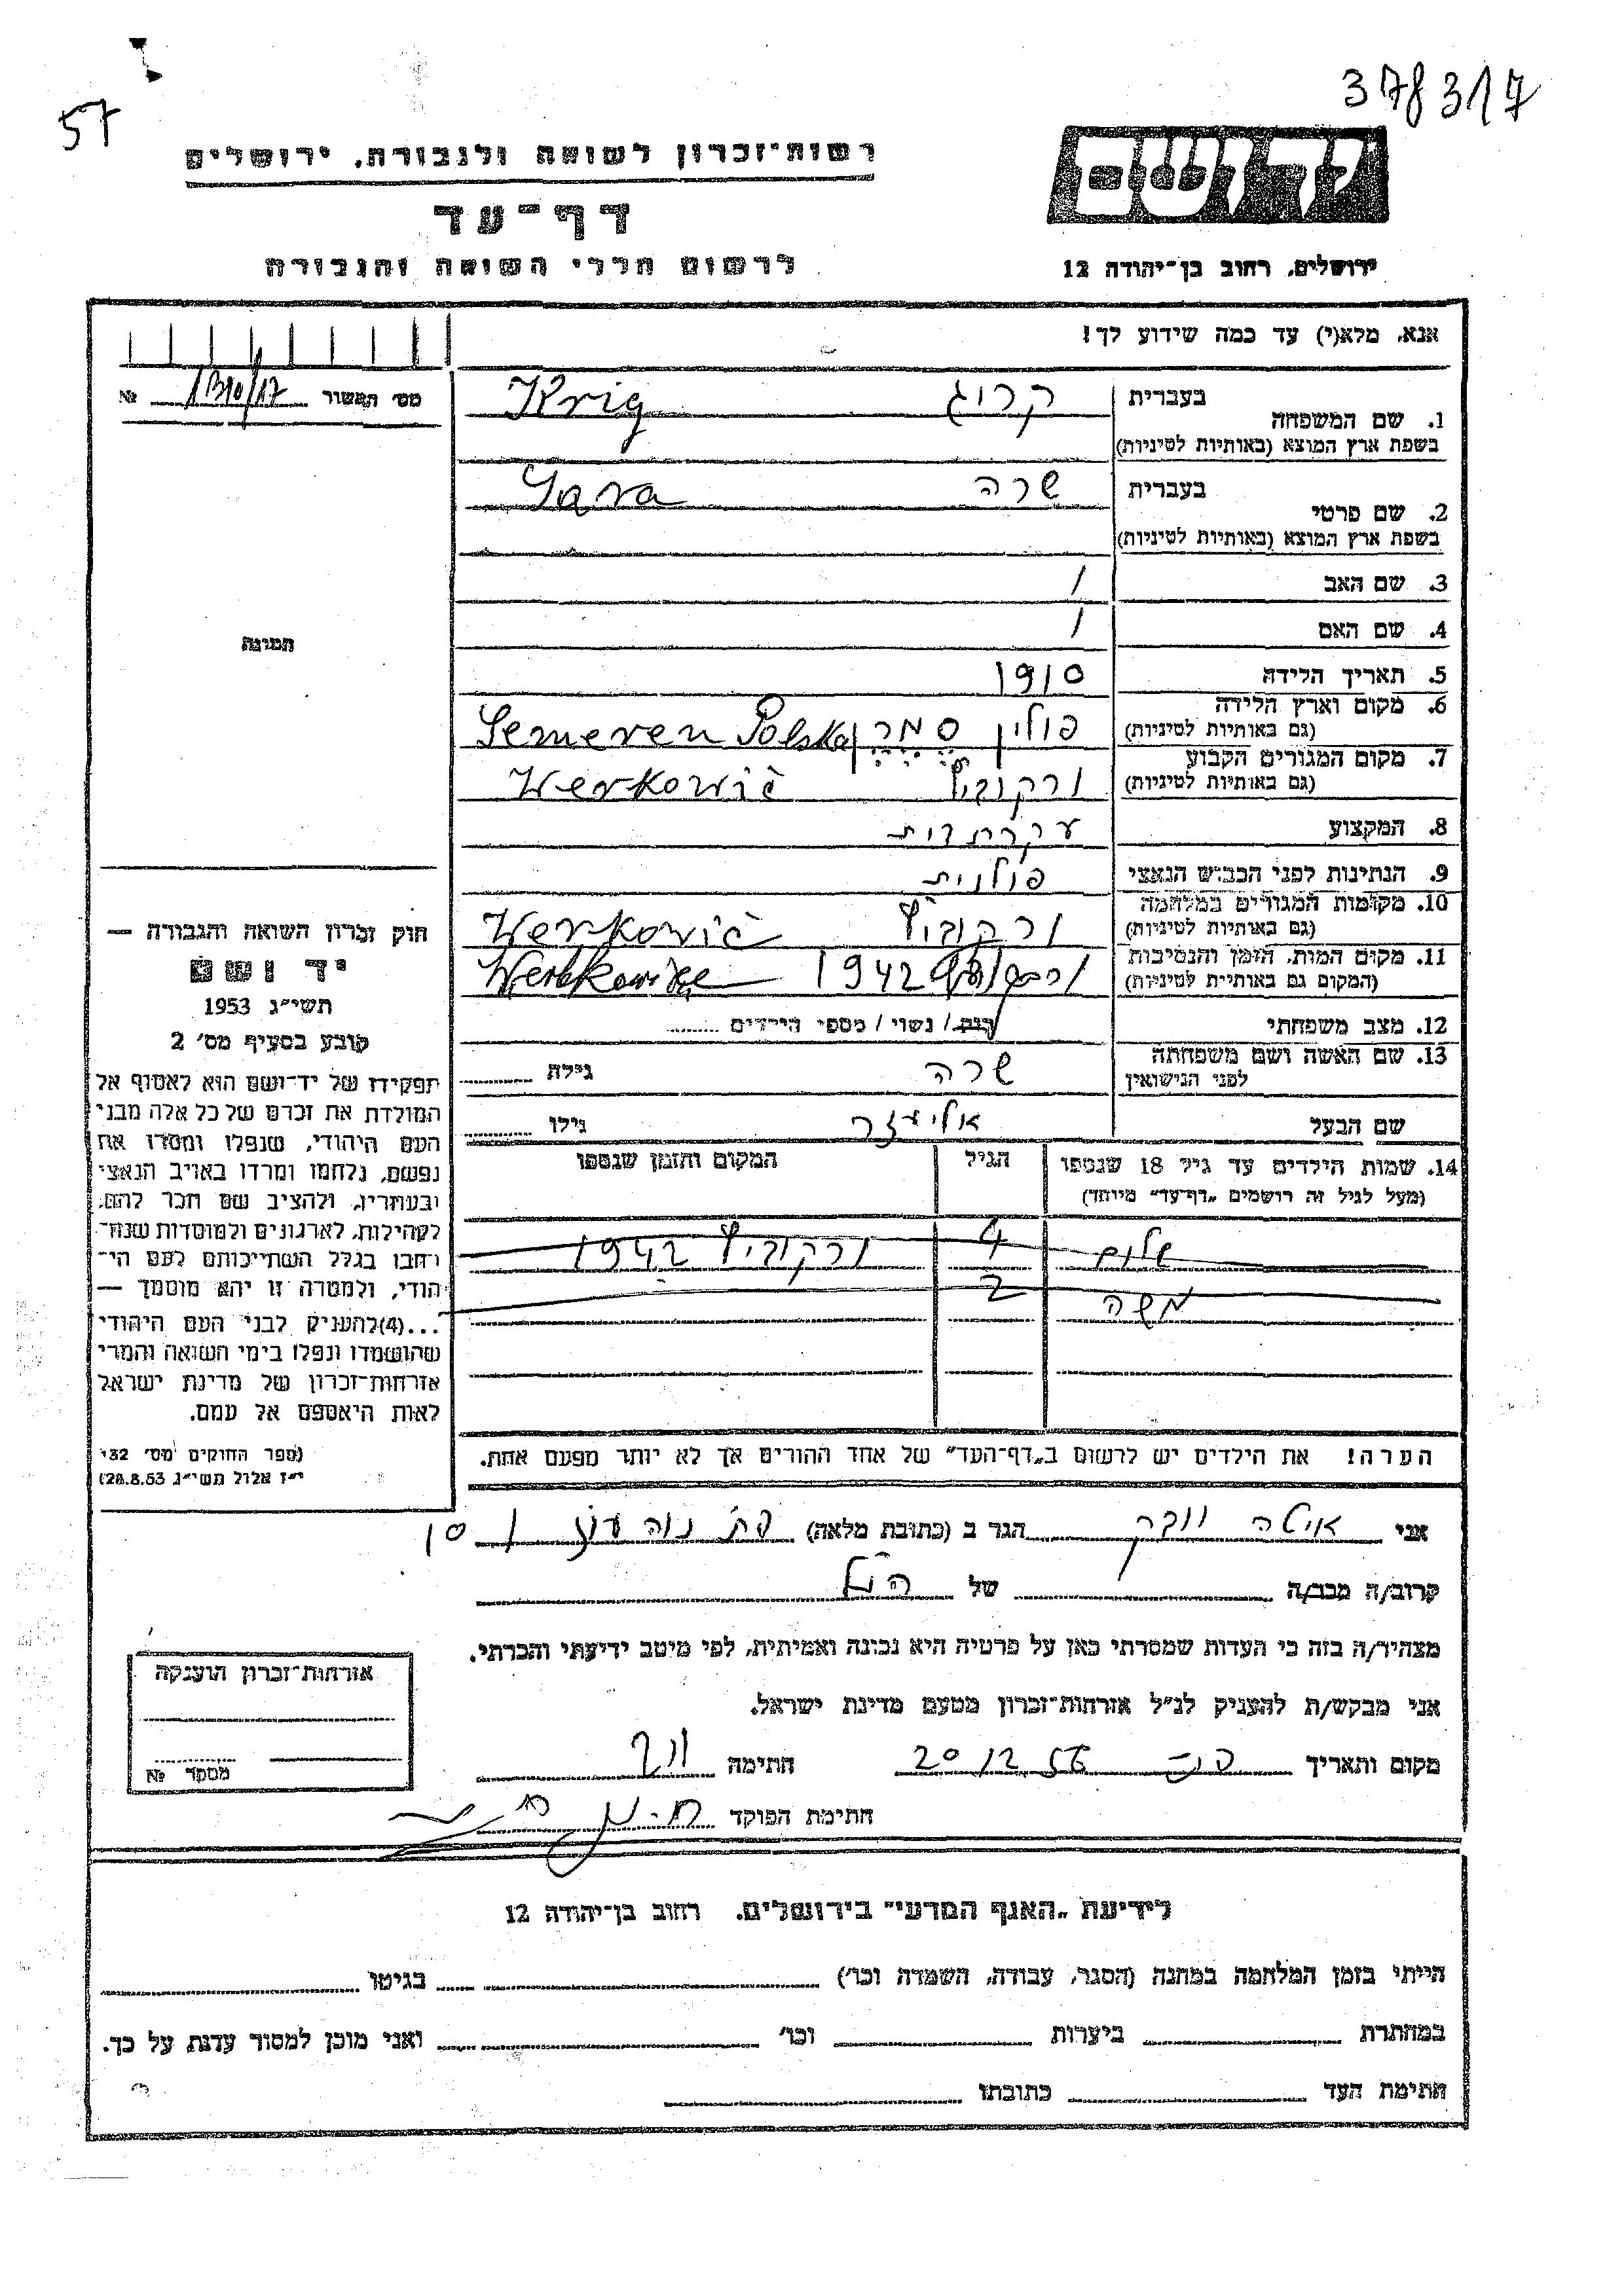 378317
57
רשות־זכרון לשואה ולגבורה, ירושלים
דף־עד
לרשום חללי השואה והגבורה
יד ושם
ירושלים, רחוב בן־יהודה 12
אנא, מלא(י) עד כמה שידוע לך!
מס׳ האשור № 1310/17
1. שם המשפחה
בעברית קרוג Krig
בשפת ארץ המוצא (באותיות לטיניות)
2. שם פרטי
בעברית שרה Sara
בשפת ארץ המוצא (באותיות לטיניות)
3. שם האב /
4. שם האם /
5. תאריך הלידה 1910
6. מקום וארץ הלידה פולין Semeren Polska
(גם באותיות לטיניות)
7. מקום המגורים הקבוע ורקוביץ Werkowič
(גם באותיות לטיניות)
8. המקצוע עקרת בית
9. הנתינות לפני הכבוש הנאצי פולנית
10. מקומות המגורים במלחמה ורקוביץ Werkowič
(גם באותיות לטיניות)
11. מקום המות, הזמן והנסיבות 1942
(המקום גם באותיות לטיניות)
12. מצב משפחתי רווק / נשוי / מספר הילדים
13. שם האשה ושם משפחתה שרה גילה
לפני הנישואין
שם הבעל אליעזר גילו
14. שמות הילדים עד גיל 18 שנספו הגיל המקום והזמן שנספו
(מעל לגיל זה רושמים „דף־עד” מיוחד)
שלום 4 ורקוביץ 1942
משה 2
הערה! את הילדים יש לרשום ב„דף־העד” של אחד ההורים אך לא יותר מפעם אחת.
תמונה
חוק זכרון השואה והגבורה —
יד ושם
תשי״ג 1953
קובע בסעיף מס׳ 2
תפקידו של יד־ושם הוא לאסוף אל
המולדת את זכרם של כל אלה מבני
העם היהודי, שנפלו ומסרו את
נפשם, נלחמו ומרדו באויב הנאצי
ובעוזריו, ולהציב שם וזכר להם,
לקהילות, לארגונים ולמוסדות שנח־
רחבו בגלל השתייכותם לעם הי־
הודי, ולמטרה זו יהא מוסמך —
...(4)להעניק לבני העם היהודי
שהושמדו ונפלו בימי השואה והמרי
אזרחות־זכרון של מדינת ישראל
לאות היאספם אל עמם.
(ספר החוקים מס׳ 132
י״ז אלול תשי״ג 28.8.53)
אני איטה הגר ב (כתובת מלאה) פת נוה עוז
קרוב/ה מכר/ה של הנ״ל
מצהיר/ה בזה כי העדות שמסרתי כאן על פרטיה היא נכונה ואמיתית, לפי מיטב ידיעתי והכרתי.
אני מבקש/ת להעניק לנ״ל אזרחות־זכרון מטעם מדינת ישראל.
מקום ותאריך 20 12 56 חתימה
חתימת הפוקד
אזרחות־זכרון הוענקה
מספר №
לידיעת „האגף המדעי” בירושלים, רחוב בן־יהודה 12
הייתי בזמן המלחמה במחנה (הסגר, עבודה, השמדה וכו׳) בגיטו
במחתרת ביערות וכו׳ ואני מוכן למסור עדות על כך.
חתימת העד כתובתו